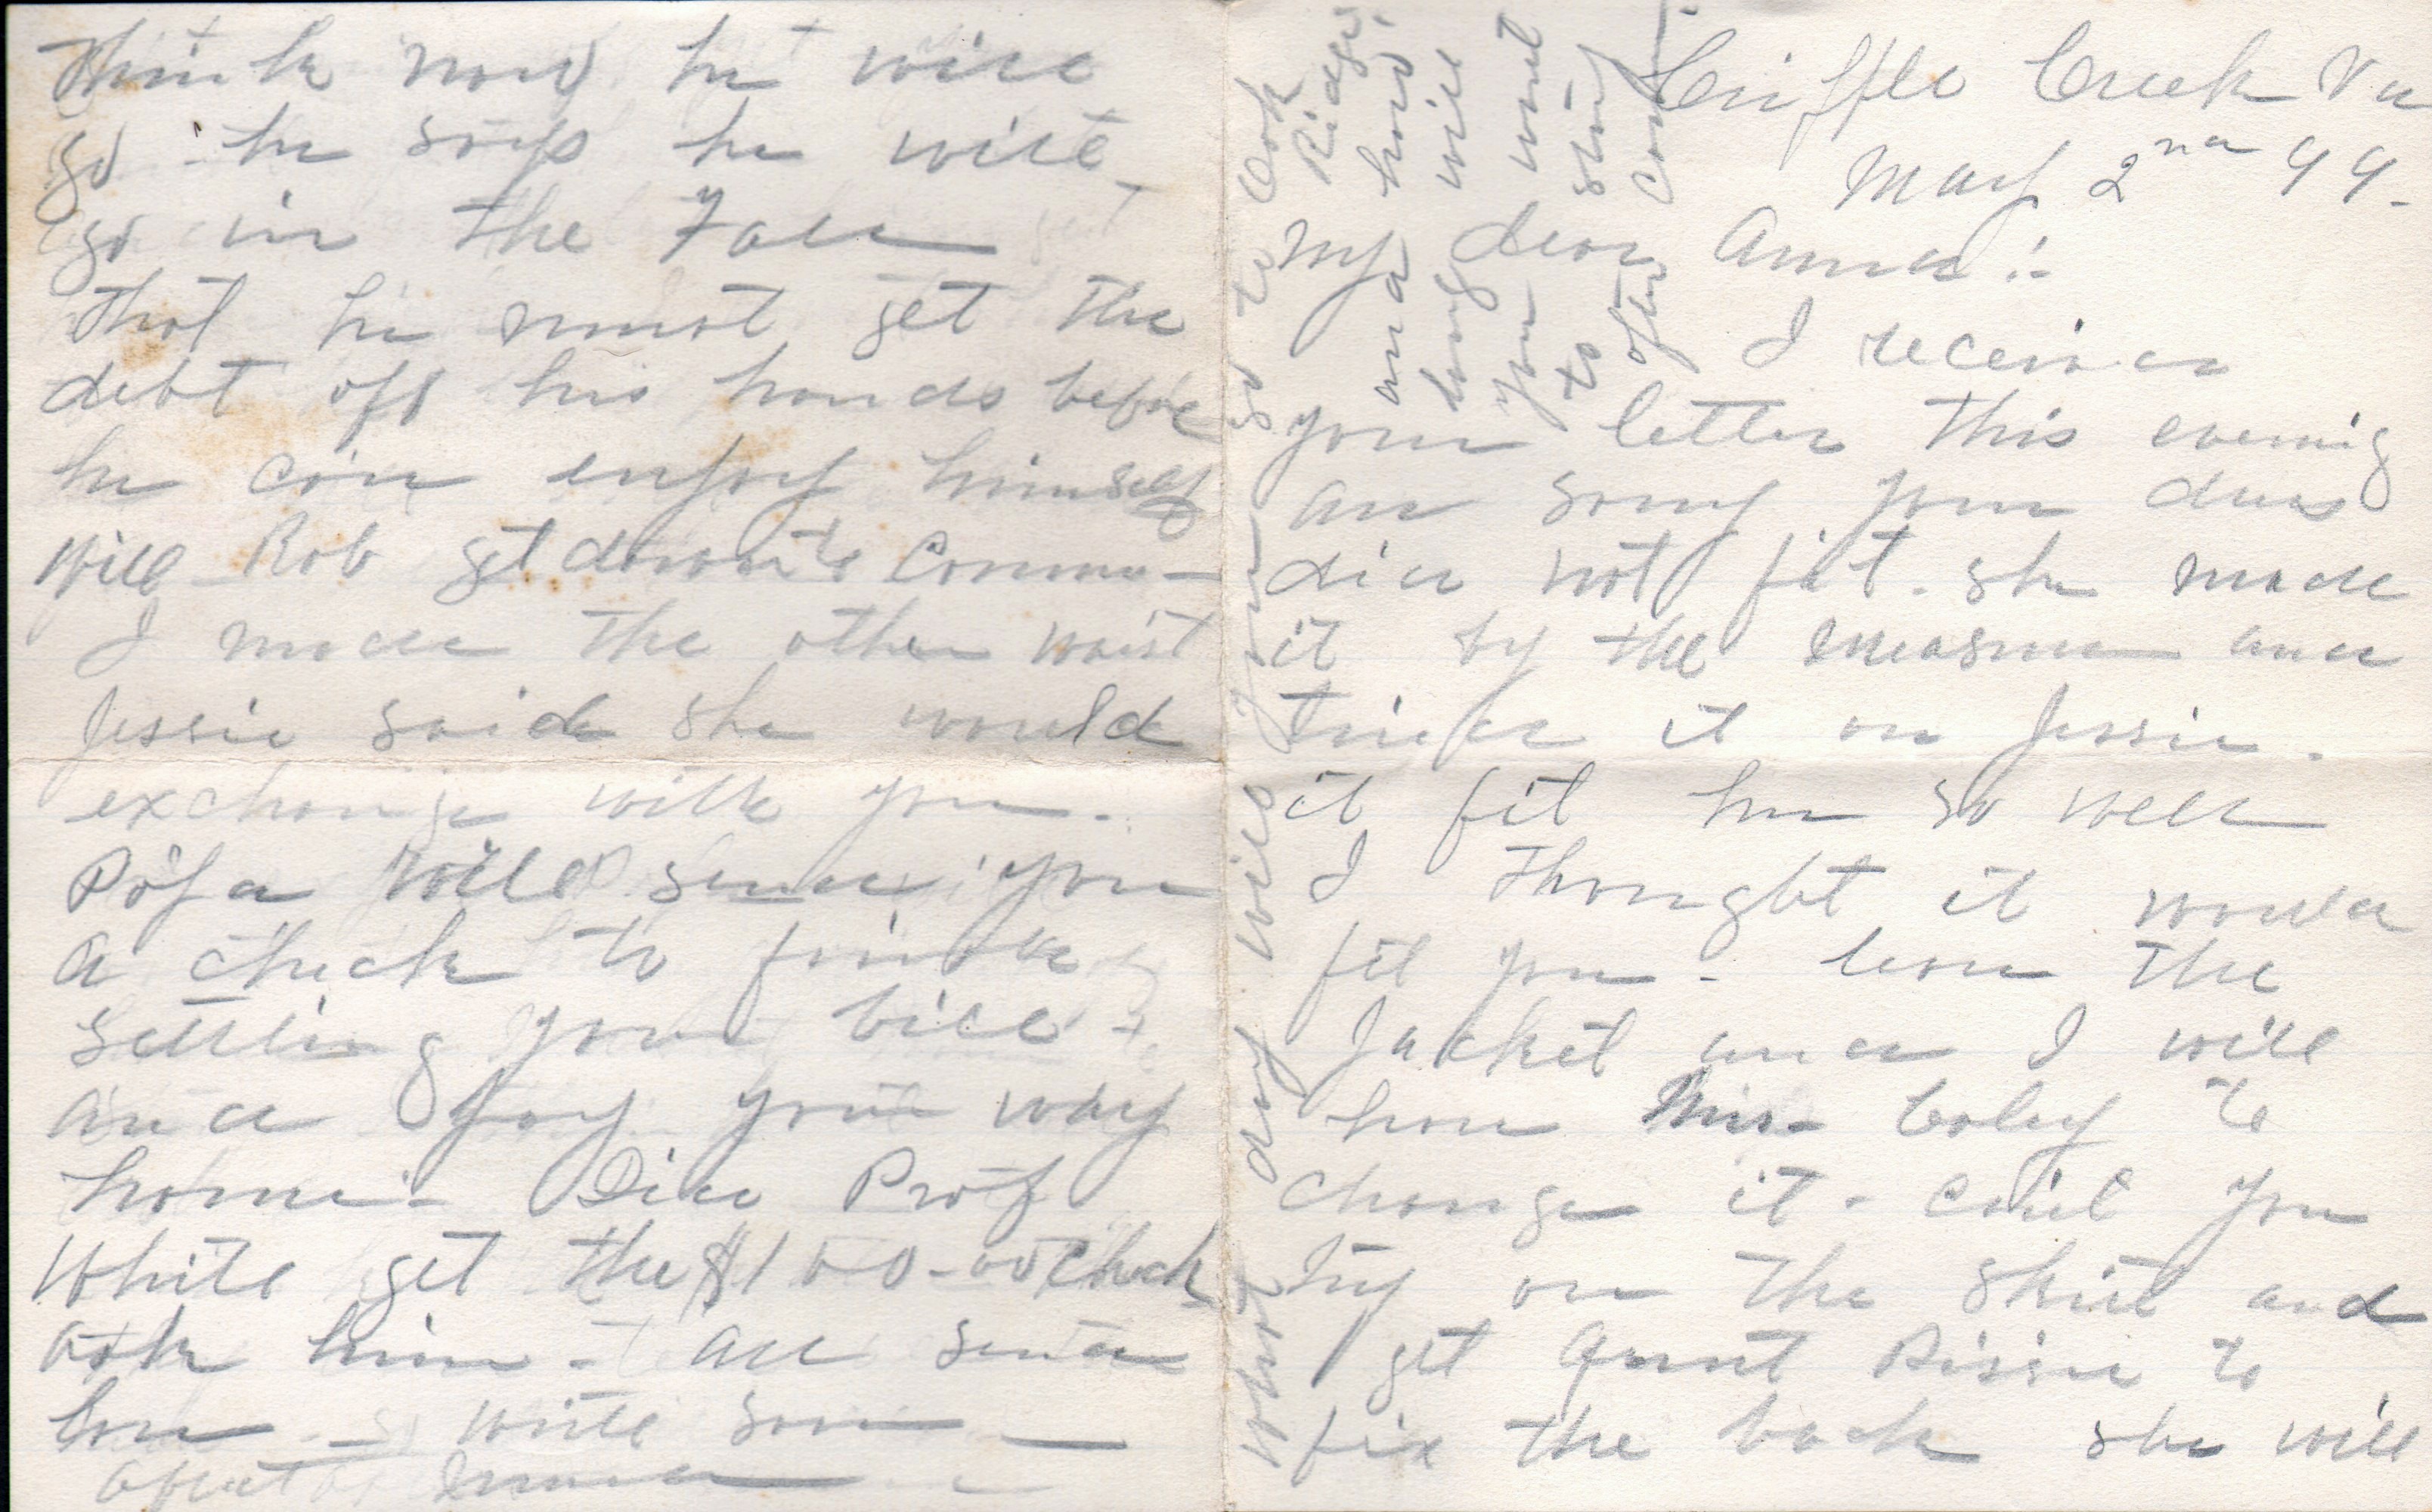 Cripple Creek Va
May 2nd 99.
My dear Anna:-
I received
your letter this evening
am sorry your dress
did not fit. she made
it by the measure and
tried it on Jessie.
it fit her so well
I thought it would
fit you - leave the
Jacket and I will
have Mrs Coley to
change it - can't you
try on the skirt and
get Aunt Rissie to
fix the back she will
think now he will
go - he says he will
go in the Fall
that he must get the
debt off his hands before
he can enjoy himself
Will Rob get down to Comm-
I made the other waist
Jessie said she would
exchange with you.
Papa will send you
a check to finish
settling your bill -
and pay your way
home - Did Prof
White get the $100.00 check
ask him - all send
love - write soon
Afft
what day will you go to
Ridge
and how
long will
you want
to stay
often